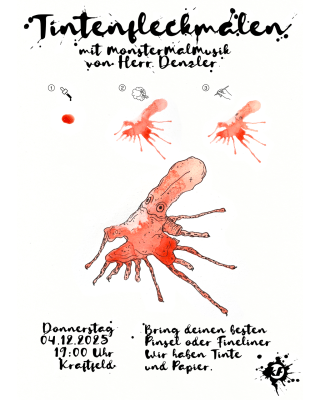 Tintenfleckmalen
mit monstermalmusik
von Herr Denzler
1 2 3
Donnerstag
04.12.2025
19:00 Uhr
Kraftfeld
Bring deinen besten
Pinsel oder Fineliner
Wir haben Tinte
und Papier.